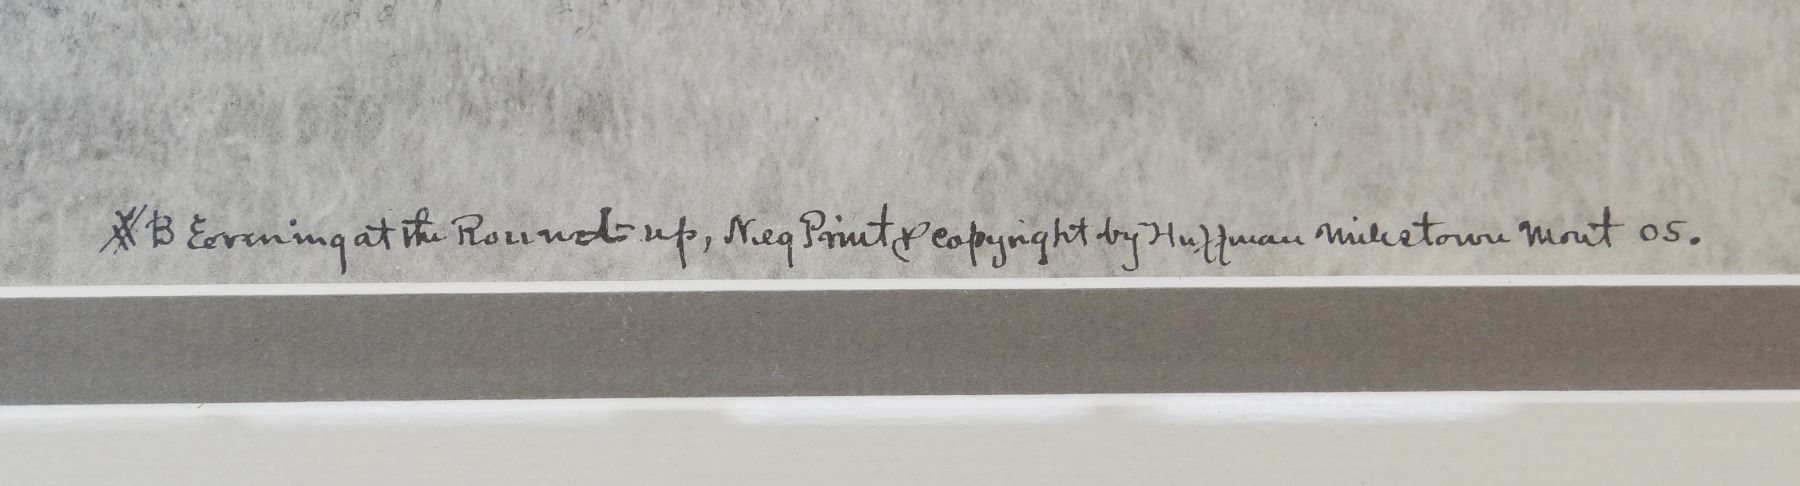 B Evening at the Round up, Neg Print & copyright by Huffman Milestown Mont 05.